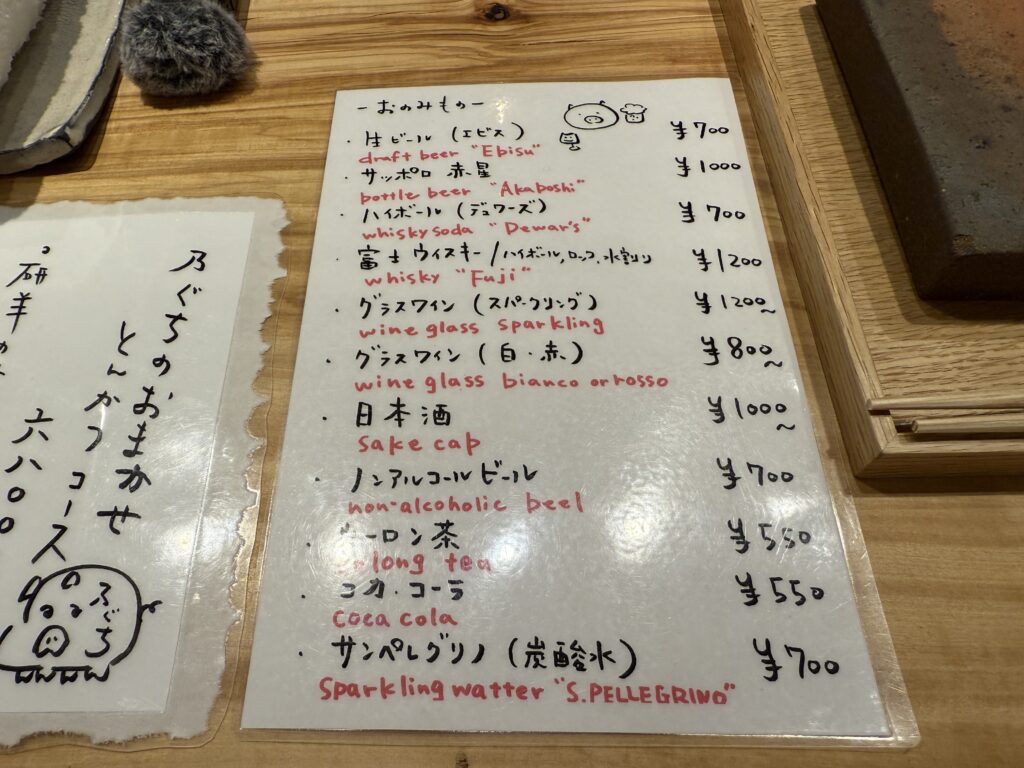 -おのみもの-
・生ビール (エビス) ¥700
draft beer "Ebisu"
・サッポロ 赤星 ¥1000
bottle beer "Akaboshi"
・ハイボール (デュワーズ) ¥700
whisky soda "Dewar's"
・富士ウイスキー/ハイボール,ロック,水割り ¥1200
whisky "Fuji"
・グラスワイン (スパークリング) ¥1200~
wine glass sparkling
・グラスワイン (白・赤) ¥800~
wine glass bianco or rosso
・日本酒 ¥1000~
sake cap
・ノンアルコールビール ¥700
non-alcoholic beel
・ウーロン茶 ¥550
oolong tea
・コカ・コーラ ¥550
coca cola
・サンペレグリノ (炭酸水) ¥700
Sparkling watter "S.PELLEGRINO"
乃ぐちのおまかせ
とんかつコース
六八〇〇
乃ぐち